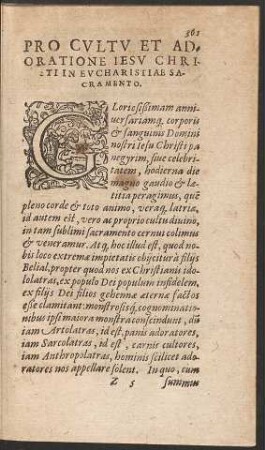 361
PRO CVLTV ET AD-
ORATIONE IESV CHRI
STI IN EVCHARISTIAE SA-
CRAMENTO.
GLoriosissimam anni-
uersariamq́; corporis
& sanguinis Domini
nostri Iesu Christi pa
negyrim, siue celebri-
tatem, hodierna die
magno gaudio & læ-
titia peragimus, quē
pleno corde & toto animo, veraq́; latria,
id autem est, vero ac proprio cultu diuino,
in tam sublimi sacramento cernui colimus
& veneramur. Atq́; hoc illud est, quod no-
bis loco extremæ impietatis obijcitur à filijs
Belial, propter quod nos ex Christianis ido-
lolatras, ex populo Dei populum infidelem,
ex filijs Dei filios gehennæ æternæ factos
esse clamitant: monstrosisq́; cognominatio-
nibus ipsi maiora monstra conscindunt, dū
iam Artolatras, id est, panis adoratores,
iam Sarcolatras, id est, carnis cultores,
iam Anthropolatras, hominis scilicet ado-
ratores nos appellare solent. In quo, cum
Z 5 summus